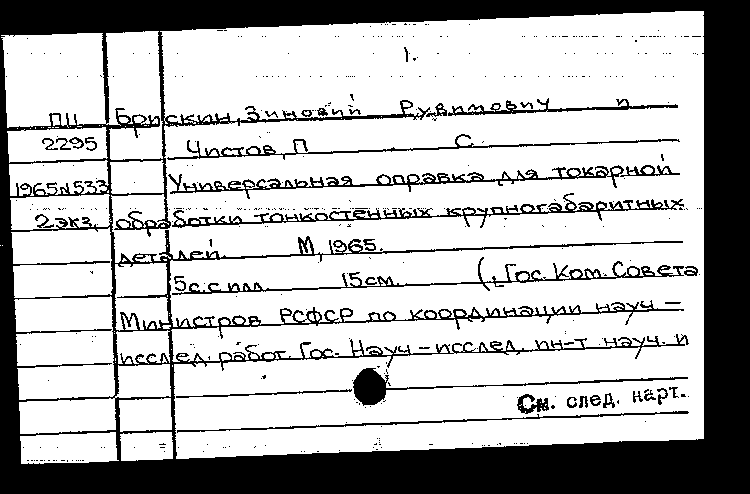 1.
ПII Брискин, Зиновий Рувимович и
2295 Чистов, П С.
1965 N533 Универсальная оправка для токарной
2 экз. обработки тонкостенных крупногабаритных
деталей. М, 1965.
5с. с илл. 15см. (Гос. Ком. Совета
Министров РСФСР по координации науч –
исслед. работ. Гос. Науч – исслед. ин–т науч. и
См. след. карт.